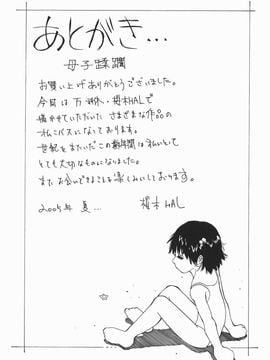 あとがき…
母子蹂躙
お買い上げありがとうございました。
今回は万
描かせていただいた さまざまな作品の
になっております。
世紀をまたいだこの 年間は私にとって
とても大切なものになりました。
またお会いできることを楽しみにしております。
2005年 夏… 猫木HAL